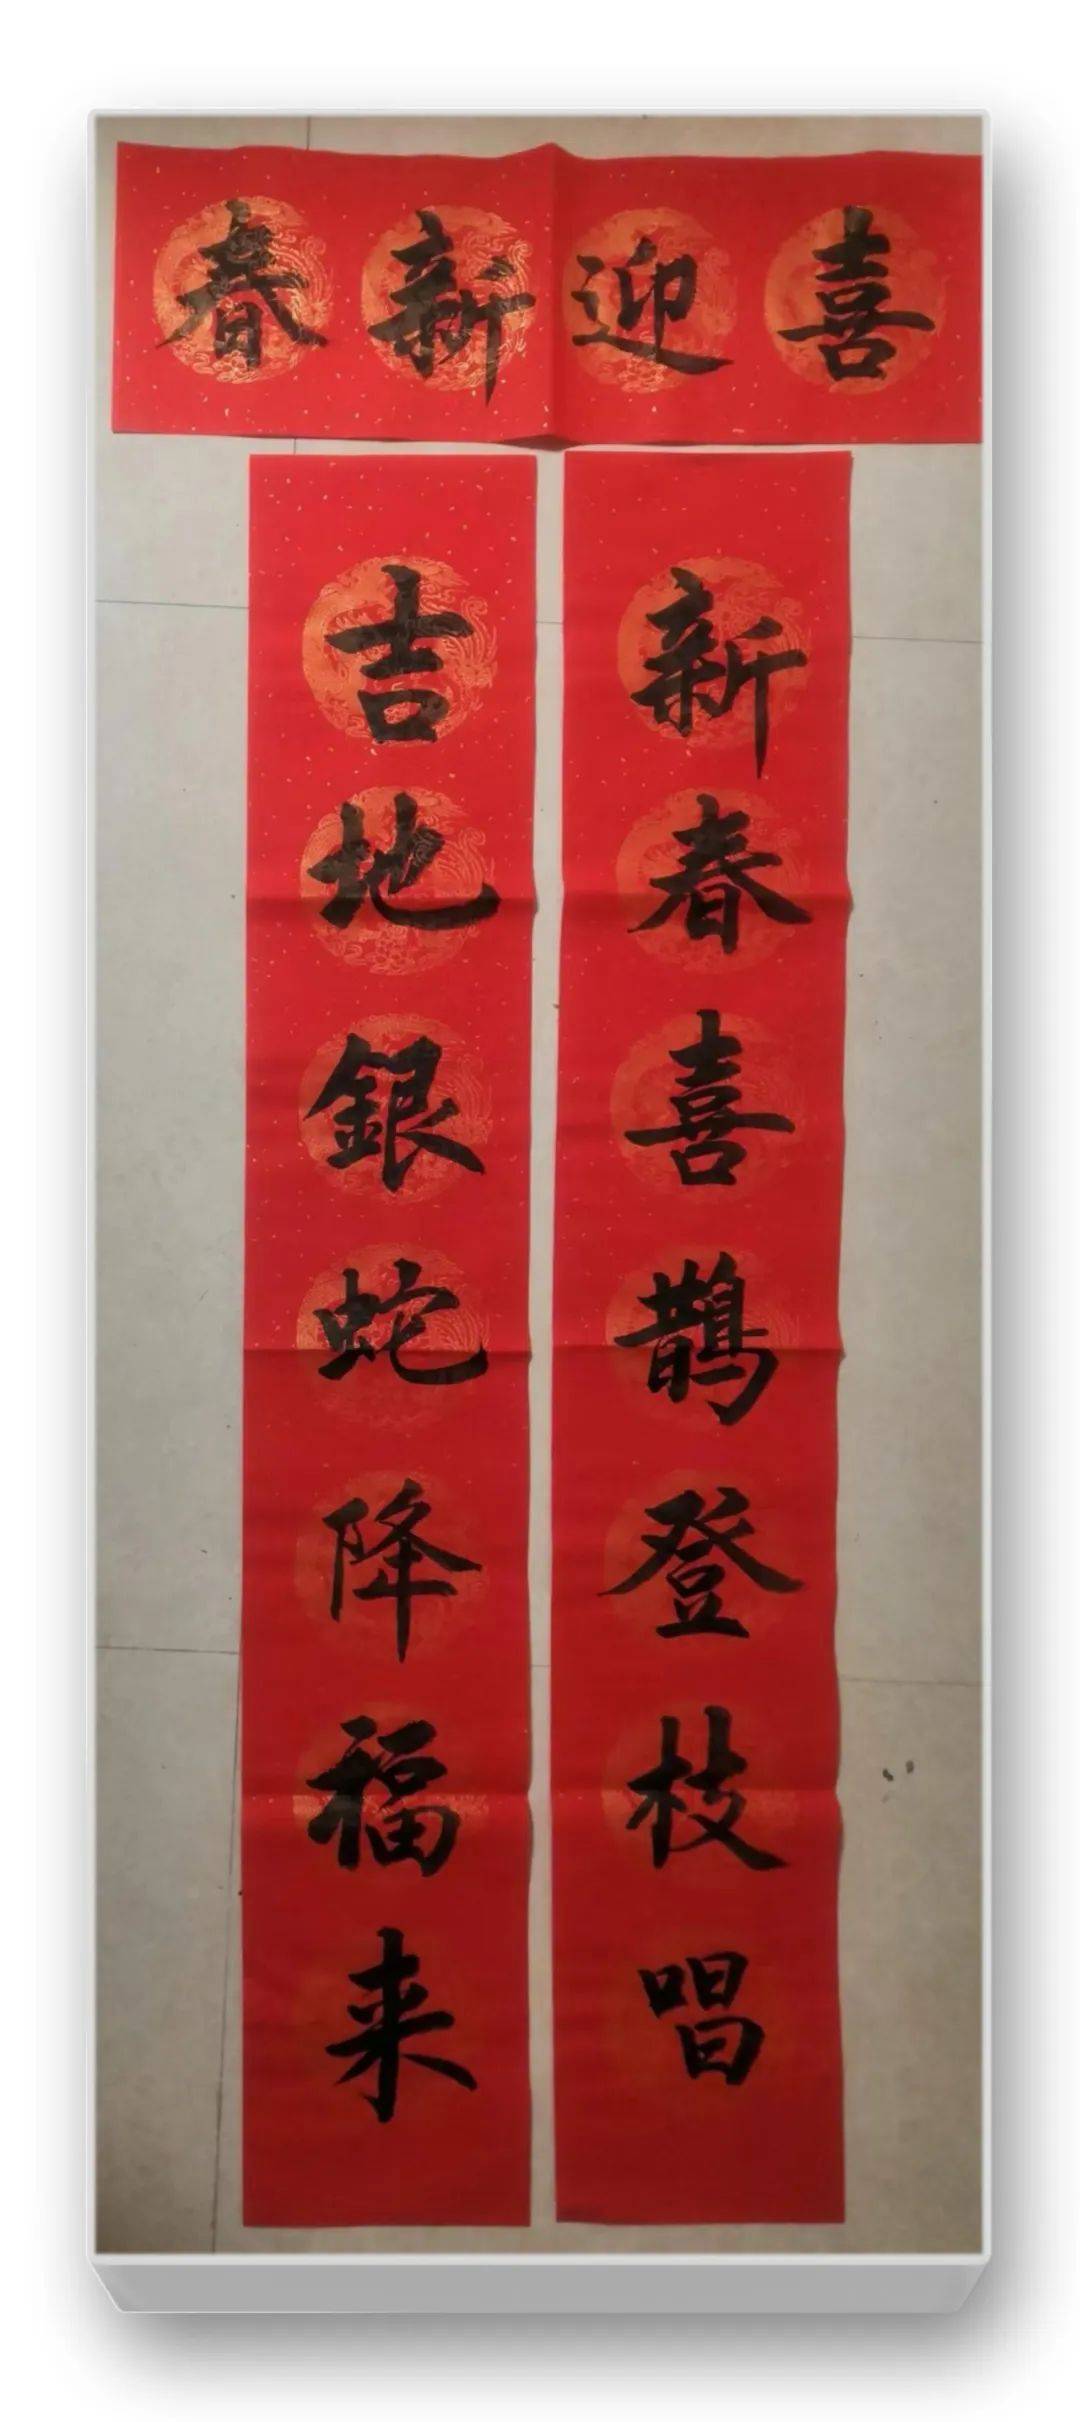 喜迎新春
新春喜鵲登枝唱
吉地銀蛇降福来